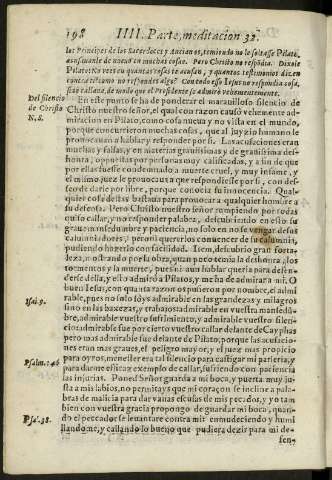 198 IIII. Parte, meditacion 32.
los Principes de los Sacerdotes y Ancianos, temiendo no le soltasse Pilato,
acusauanle de nueuo en muchas cosas. Pero Christo no respõdia. Dixole
Pilato: No vees en quantas cosas te acusan, y quantos testimonios dizen
contra ti como no respondes algo? Con todo esso Iesus no respondia cosa,
sino callaua, de modo que el Presidente se admirò vehementemente.
Del silencio
de Christo
N. S.
En este punto se ha de ponderar el marauilloso silencio de
Christo nuestro señor, el qual con razon causò vehemente ad-
miracion en Pilato, como cosa nueua y no vista en el mundo,
porque concurrieron muchas cosas, que al juyzio humano le
prouocauan a hablar y responder por si. Las acusaciones eran
muchas y falsas, y en materias grauissimas y de grauissima des-
honrra, opuestas por personas muy calificadas, y a fin de que
por ellas fuesse condenado a muerte cruel, y muy infame, y
el mismo juez le prouocaua a que respondiesse por si, con des-
seo de darle por libre, porque conocia su innocencia. Qual-
quier cosa destas bastaua para prouocar a qualquier hombre a
su defensa. Pero Christo nuestro señor rompiendo por todas
quiso callar, y no responder palabra, descubriendo en esto su
gran mansedumbre y paciencia, no solo en no se vengar de sus
calumniadores, pero ni quererlos conuencer de su calumnia,
pudiendo hazerlo con facilidad. Iten, descubrio gran forta-
leza, mostrando por la obra, quan poco temia la deshonra, los
tormentos y la muerte, pues ni aun hablar queria para defen-
derse della, y esto admirò a Pilatos, y me ha de admirar a mi. O
Isai. 9.
buen Iesus, con quanta razon os pusieron por nombre, el admi-
rable, pues no solo soys admirable en las grandezas y milagros
sino en las baxezas, y trabajos: admirable en vuestra mansedũ-
bre, admirable vuestro sufrimiento, y admirable vuestro silen-
cio: admirable fue por cierto vuestro callar delante de Cayphas
pero mas admirable fue delante de Pilato, porque las acusacio-
nes eran mas graues, el peligro mayor, y el juez mas propicio
Psalm. 140.
para oyros, menester era tal silencio para castigar mi parleria, y
para darme eficaz exemplo de callar, sufriendo con paciencia
las injurias. Poned Señor guarda a mi boca, y puerta muy ju-
sta a mis labios, no permitays que mi coraçon se incline a pala-
bras de malicia para dar vanas escusas de mis pecados, y yo tam
Psal. 38.
bien con vuestra gracia propongo de guardar mi boca, quan-
do el pecador se leuantare contra mi: enmudeciendo y humi
llandome, y callando lo bueno que pudiera dezir para mi de
fen-